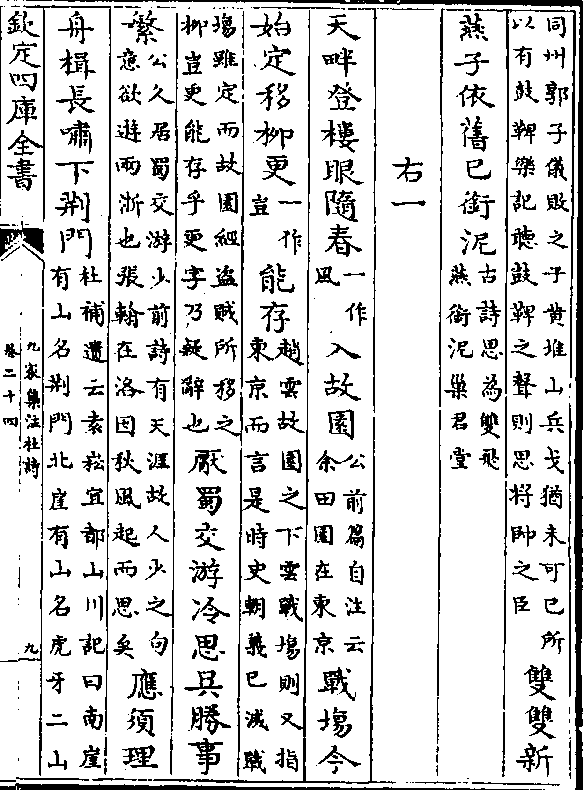 同州郭子儀敗之于黄堆山兵戈猶未可已所
以有鼓鞞樂記聽鼓鞞之聲則思將帥之臣
雙雙新
燕子依舊已銜泥
古詩思為雙飛
燕銜泥巢君堂
右一
天畔登樓眼隨春
一作
風
入故園
公前篇自注云
余田園在東京
戰塲今
始定移柳更
一作
豈
能存
趙雲故園之下雲戰塲則又指
東京而言是時史朝義已滅戰
塲雖定而故園經盗賊所移之
柳豈更能存乎更字乃疑辭也
厭蜀交游冷思呉勝事
繁
公久居蜀交游少前詩有天涯故人少之句
意欲遊兩浙也張翰在洛因秋風起而思矣
應須理
舟楫長嘯下荆門
杜補遺云袁崧宜都山川記曰南崖
有山名荆門北崖有山名虎牙二山
欽定四庫全書
九家集注杜詩
卷二十四
九